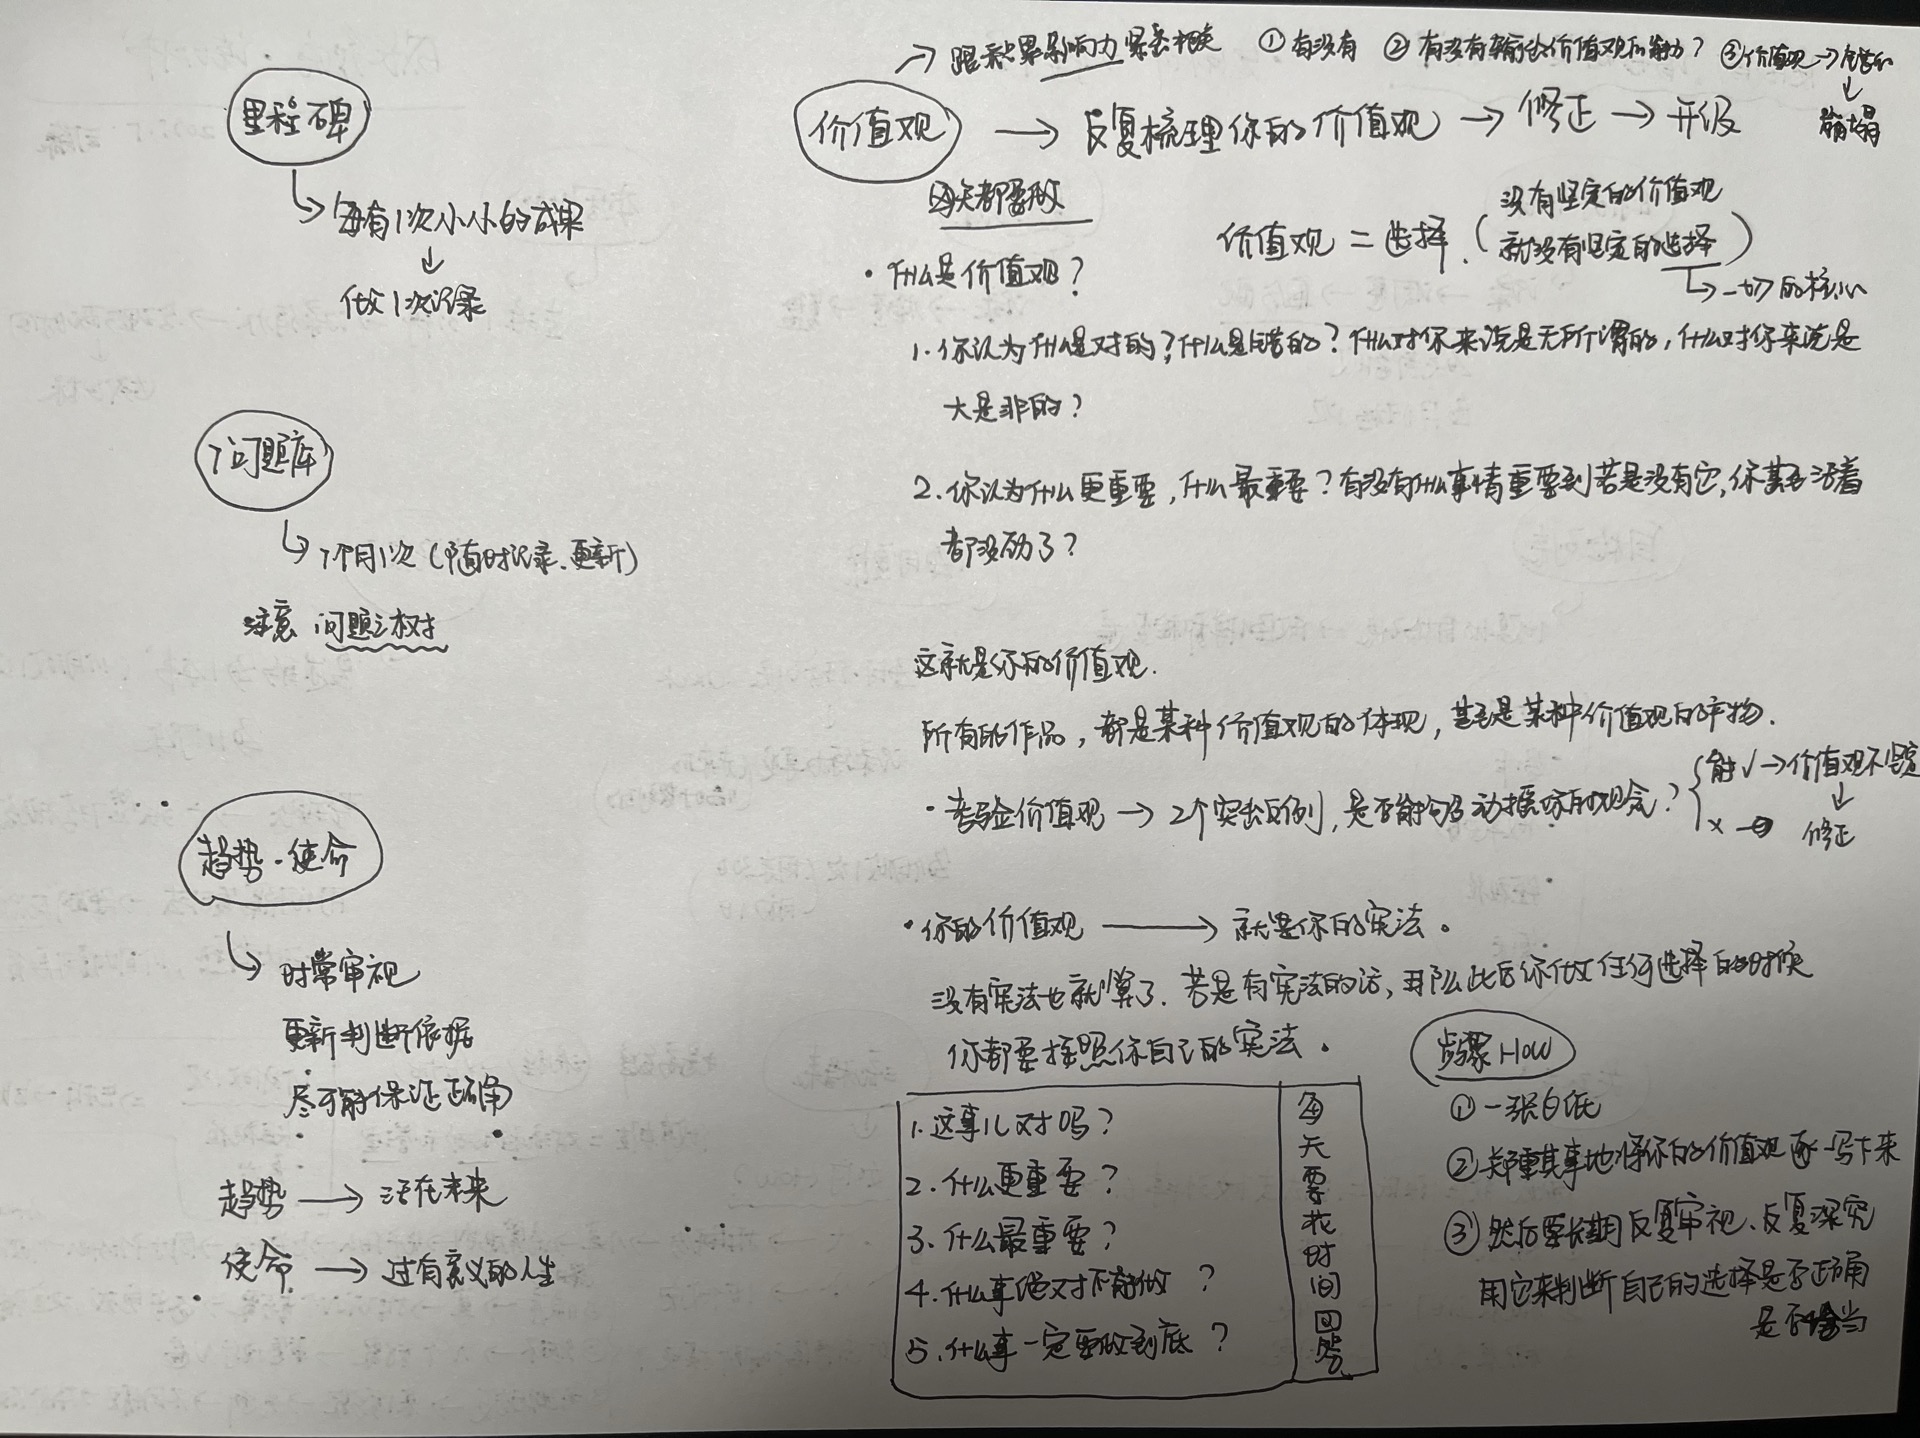 里程碑
每有1次小小的成果
↓
做1次记录
问题库
1个月1次（随时记录、更新）
注意 问题之树
趋势·使命
时常审视
更新判断依据
尽可能保证正确
趋势 → 活在未来
使命 → 过有意义的人生
→ 跟积累影响力紧密相关 ① 有没有 ② 有没有输出价值观的能力？ ③ 价值观 →
↓
崩塌
价值观 → 反复梳理你的价值观 → 修正 → 升级
每天都要做
价值观 = 选择.（没有坚定的价值观
就没有坚定的选择）
↳ 一切的核心
· 什么是价值观？
1. 你认为什么是对的？什么是错的？什么对你来说是无所谓的，什么对你来说是
大是非的？
2. 你认为什么更重要，什么最重要？有没有什么事情重要到若是没有它，你甚至活着
都没劲了？
这就是你的价值观.
所有的作品，都是某种价值观的体现，甚至是某种价值观的产物.
· 考验价值观 → 2个突出反例，是否能够动摇你的观念？
能 ✓ → 价值观不坚定
↓
× → 修正
· 你的价值观 → 就是你的宪法。
没有宪法也就算了. 若是有宪法的话，那么此后你做任何选择的时候
你都要按照你自己的宪法。
1. 这事儿对吗？
2. 什么更重要？
3. 什么最重要？
4. 什么事绝对不能做？
5. 什么事一定要做到底？
每天要花时间回答
步骤 HOW
① 一张白纸
② 郑重其事地将你的价值观逐一写下来
③ 然后要长期反复审视、反复深究
用它来判断自己的选择是否正确
是否恰当